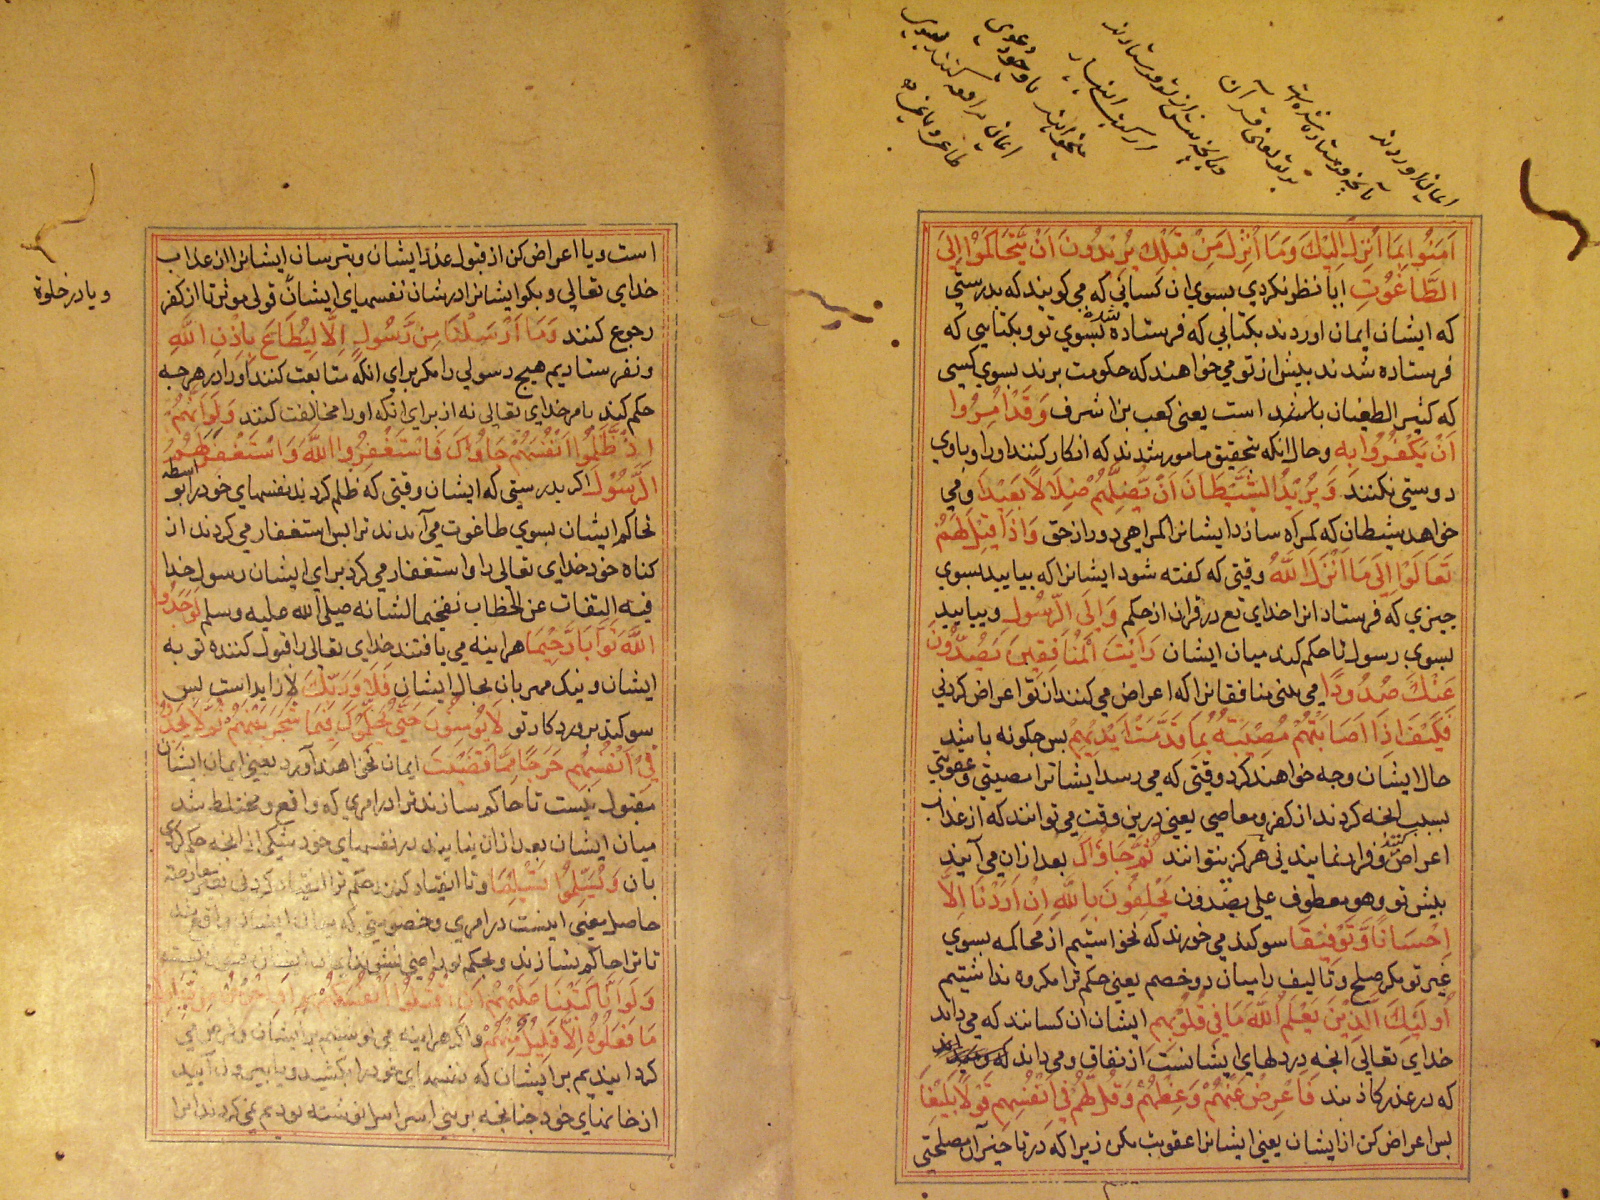 ایمان اوردند
بآنچه فرستاده شده است
بر تو یعنی قرآن
و بآنچه پیش از تو فرستادند
از کتب انبیا
میخواهند با وجود دعوی
ایمان مرافعه کنند بسوی
اٰمَنُوا بِمَا اُنْزِلَ اِلَیْكَ وَمَا اُنْزِلَ مِنْ قَبْلِكَ یُرِیْدُونَ اَنْ یَّتَحَاكَمُوْا اِلَی
الطَّاغُوْتِ ایا نظر نکردی بسوی ان کسانی که می کویند که بدرستی
که ایشان ایمان اوردند بکتابی که فرستاده شده بسوی تو و بکتابی که
فرستاده شدند بیش از تو می خواهند که حکومت برند بسوی کسی
که کثیر الطغیان باشد است یعنی کعب بن اشرف وَقَدْ اُمِرُوا
اَنْ یَكْفُرُوا بِهِ وحال انکه بتحقیق مامور شدند که انکار کنند اورا و باوی
دوستی نکنند وَیُرِیْدُ الشَّیْطَانُ اَنْ یُّضِلَّهُمْ ضَلَالًا بَعِیْدًا ومی
خواهد شیطان که کمراه سازد ایشانرا کمراهی دور از حق وَاِذَا قِیْلَ لَهُمْ
تَعَالَوْا اِلَی مَا اَنْزَلَ اللّٰهُ وقتی که کفته شود ایشانرا که بیایید بسوی
چیزی که فرستاد انرا خدای تع در قران از حکم وَاِلَی الرَّسُوْلِ وبیایید
بسوی رسول تا حکم کند میان ایشان رَاَیْتَ الْمُنَافِقِیْنَ یَصُدُّوْنَ
عَنْكَ صُدُوْدًا می بینی منافقانرا که اعراض می کنند از تو اعراض کردنی
فَكَیْفَ اِذَا اَصَابَتْهُمْ مُصِیْبَةٌ بِمَا قَدَّمَتْ اَیْدِیْهِمْ بس چکونه باشد
حال ایشان وچه خواهند کرد وقتی که می رسد ایشانرا مصیبتی وعقوبتی
بسبب انچه کردند از کفر و معاصی یعنی درین وقت می توانند که از عذاب
اعراض کنند و فرار نمایند نی هرکز نتوانند ثُمَّ جَاؤُكَ بعد ازان می آیند
بیش تو وهو معطوف علی یصدون یَحْلِفُوْنَ بِاللّٰهِ اِنْ اَرَدْنَا اِلَّا
اِحْسَانًا وَّتَوْفِیْقًا سوکند می خورند که نخواستیم از محاکمه بسوی
غیر تو مکر صلح و تالیف را میان دو خصم یعنی حکم ترا مکروه نداشتیم
اُولٰئِكَ الَّذِیْنَ یَعْلَمُ اللّٰهُ مَا فِیْ قُلُوْبِهِمْ ایشان ان کسانند که می داند
خدای تعالی انچه در دلهای ایشانست از نفاق و می داند
که در عذر کاذبند فَاَعْرِضْ عَنْهُمْ وَعِظْهُمْ وَقُلْ لَّهُمْ فِیْ اَنْفُسِهِمْ قَوْلًا بَلِیْغًا
بس اعراض کن از ایشان یعنی ایشانرا عقوبت مکن زیرا که در تاخیر آن مصلحتی
است ویا اعراض کن از قبول عذر ایشان وبترسان ایشانرا از عذاب
خدای تعالی وبکو ایشانرا در شان نفسهای ایشان قولی موثر تا از کفر
ویا در خلوة
رجوع کنند وَمَا اَرْسَلْنَا مِنْ رَّسُوْلٍ اِلَّا لِیُطَاعَ بِاِذْنِ اللّٰهِ
ونفرستادیم هیچ رسولی را مکر برای انکه متابعت کنند اورا در هرچه
حکم کند بامر خدای تعالی نه از برای انکه اورا مخالفت کنند وَلَوْ اَنَّهُمْ
اِذْ ظَّلَمُوْا اَنْفُسَهُمْ جَاؤُكَ فَاسْتَغْفِرُوا اللّٰهَ وَاسْتَغْفَرَ لَهُمُ
الرَّسُوْلُ اکر بدرستی که ایشان وقتی که ظلم کردند نفسهای خودرا بواسطه
تحاکم ایشان بسوی طاغوت می آمدند ترا بس استغفار می کردند از
کناه خود خدای تعالی را واستغفار می کرد برای ایشان رسول خدا
فیه التفات عن الخطاب تفخیما لشانه صلی الله علیه وسلم لَوَجَدُوا
اللّٰهَ تَوَّابًا رَّحِیْمًا هراینه می یافتند خدای تعالی را قبول کننده توبه
ایشان ونیک مهربان بحال ایشان فَلَا وَرَبِّكَ لا زاید است بس
سوکند بپروردکار تو لَا یُؤْمِنُوْنَ حَتّٰی یُحَكِّمُوْكَ فِیْمَا شَجَرَ بَیْنَهُمْ ثُمَّ لَا یَجِدُوْا
فِیْ اَنْفُسِهِمْ حَرَجًا مِمَّا قَضَیْتَ ایمان نخواهند آورد یعنی ایمان ایشان
مقبول نیست تا حاکم سازند ترا در امری که واقع و مختلط شد
میان ایشان بعد ازان نیابند در نفسهای خود تنکی از انچه حکم کردی
بان وَیُسَلِّمُوْا تَسْلِیْمًا وتا انقیاد کنند حکم ترا انقیاد کردنی
حاصل معنی اینست در امری وخصومتی که میان ایشان واقع شد
تا ترا حاکم نسازند وبحکم تو راضی نشوند
وَلَوْ اَنَّا كَتَبْنَا عَلَیْهِمْ اَنِ اقْتُلُوْا اَنْفُسَكُمْ اَوِ اخْرُجُوْا مِنْ دِیَارِكُمْ
مَا فَعَلُوْهُ اِلَّا قَلِیْلٌ مِّنْهُمْ واکر هراینه می نوشتیم بر ایشان وفرض می
کردانیدیم بر ایشان که نفسهای خودرا بکشید ویا بیرون آیید
از خانهای خود چنانچه بر بنی اسرائیل نوشته بودیم نمی کردند انرا